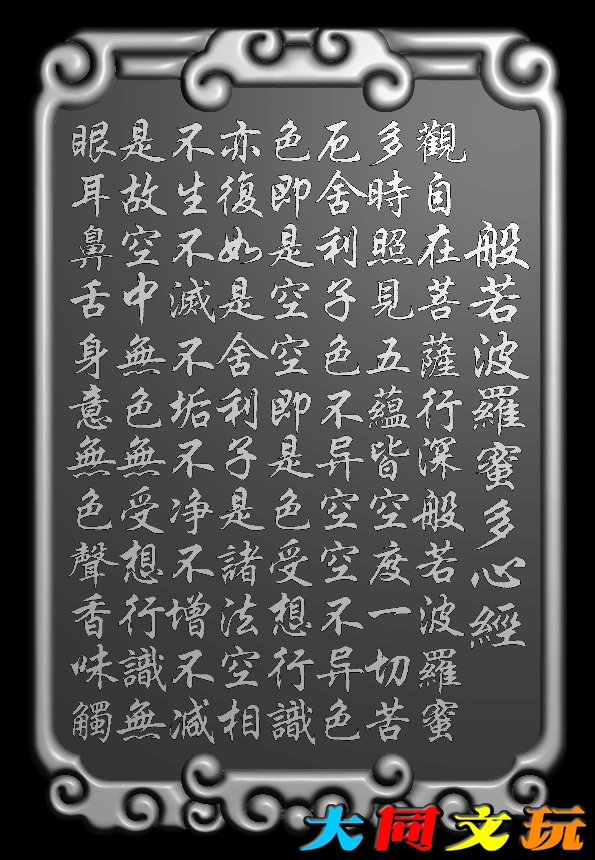 般若波羅蜜多心經
觀自在菩薩行深般若波羅蜜
多時照見五蘊皆空度一切苦
厄舍利子色不异空空不异色
色即是空空即是色受想行識
亦復如是舍利子是諸法空相
不生不滅不垢不净不增不减
是故空中無色無受想行識無
眼耳鼻舌身意無色聲香味觸
大同文玩